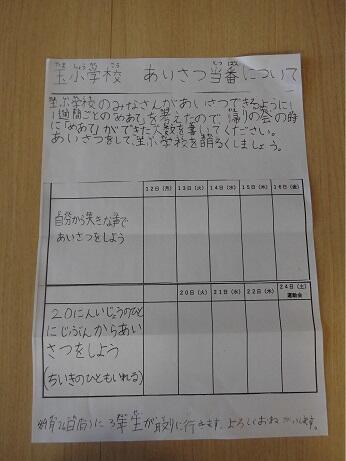 玉小学校 あいさつ当番について
玉小学校のみなさんがあいさつできるように、
1週間ごとのめあてを考えたので、帰りの会の時
に「めあて」ができた人数を書いてください。
あいさつをして、玉小学校を明るくしましょう。
12日(月) 13日(火) 14日(水) 15日(木) 16日(金)
自分から大きな声で
あいさつをしよう
20日(火) 21日(水) 22日(木) 24日(土)
運動会
20にんいじょうのひと
にじぶんからあい
さつをしよう
(ちいきのひともいれる)
年生が取りに行きます。よろしくおねがいします。